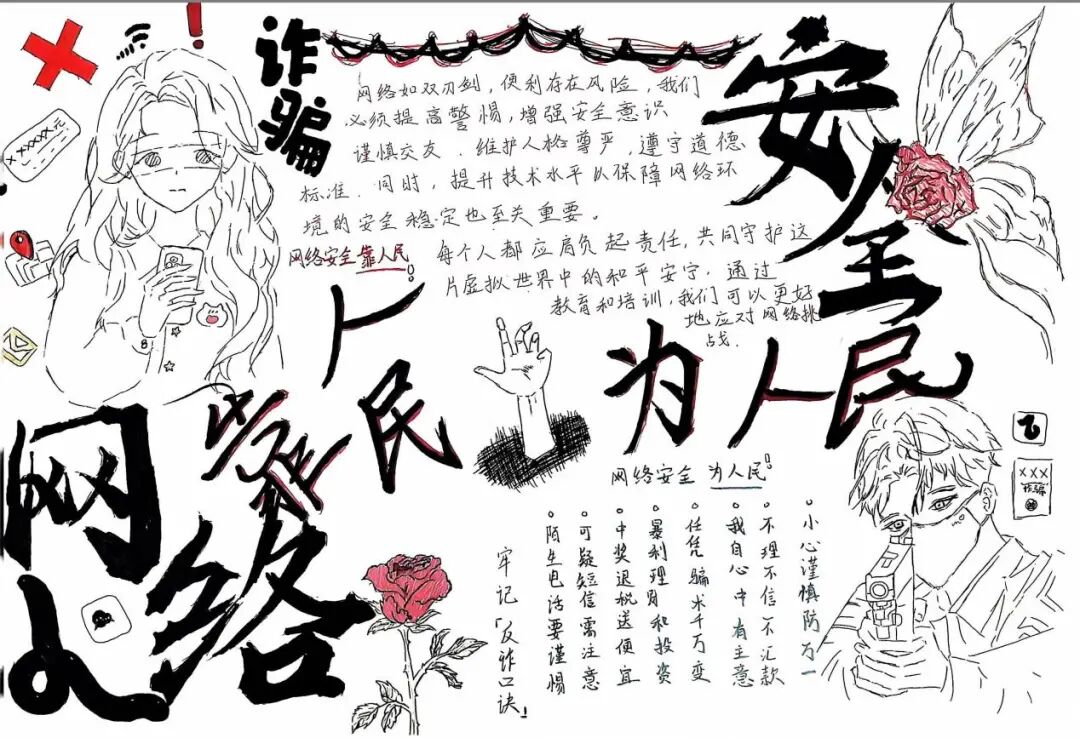 诈骗
网络如双刃剑，便利存在风险，我们
必须提高警惕，增强安全意识
谨慎交友．维护人格尊严，遵守道德
标准．同时，提升技术水平以保障网络环
境的安全稳定也至关重要。
每个人都应肩负起责任，共同守护这
片虚拟世界中的和平安宁，通过
教育和培训，我们可以更好
地应对网络挑
战．
安全
网络安全靠人民!
xxxxxx元
网络
靠人民
为人民
网络安全 为人民!
牢记「反诈口诀」
陌生电话要谨惕
可疑短信需注意
中奖退税送便宜
暴利理财和投资
任凭骗术千万变
我自心中有主意
不理不信不汇款
小心谨慎防万一
XXX
诈骗